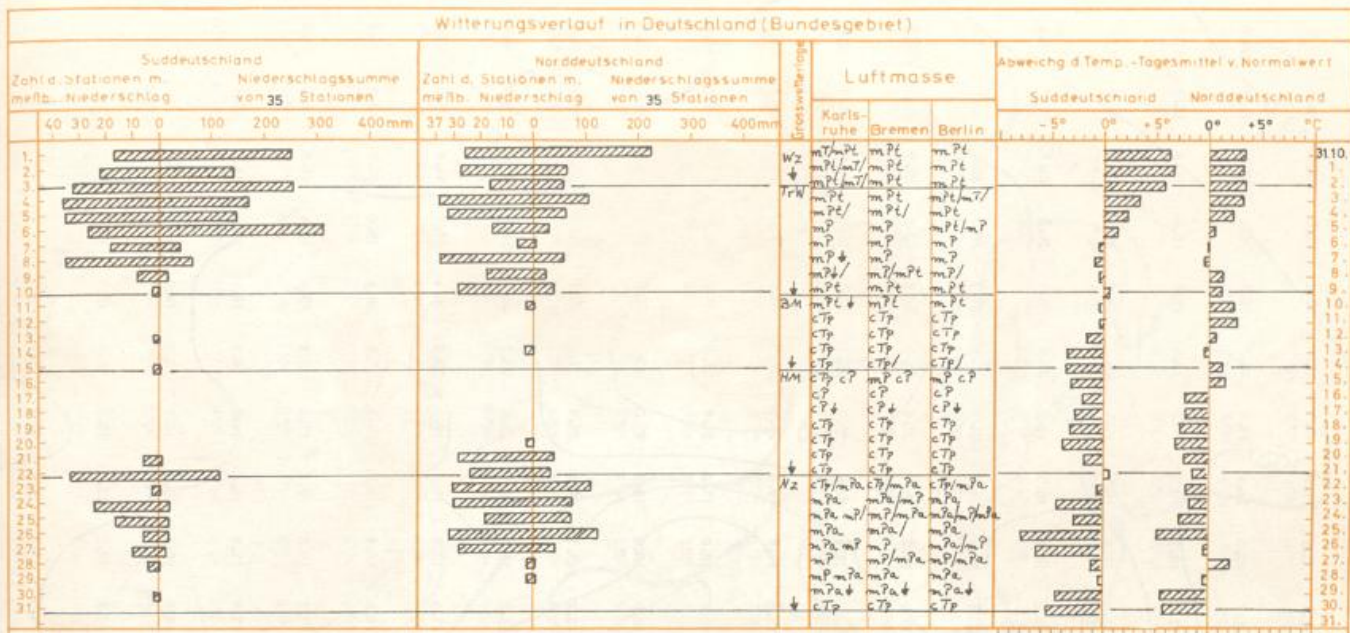 Witterungsverlauf in Deutschland (Bundesgebiet)
Süddeutschland
Zahl d. Stationen m. meßb. Niederschlag
Niederschlagssumme von 35 Stationen
Norddeutschland
Zahl d. Stationen m. meßb. Niederschlag
Niederschlagssumme von 35 Stationen
Grosswetterlage
Luftmasse
Abweichg d. Temp.-Tagesmittel v. Normalwert
Süddeutschland Norddeutschland
Karlsruhe Bremen Berlin
40 30 20 10 0 100 200 300 400mm
37 30 20 10 0 100 200 300 400mm
-5° 0° +5° 0° +5° °C
1. Wz mT/mPt mPt mPt 31.10.
2. mPt/mT/ mPt mPt 1.
3. mPt/mT/ mPt mPt 2.
4. TrW mPt mPt mPt/mT/ 3.
5. mPt/ mPt/ mPt 4.
6. mP mP mPt/mP 5.
7. mP mP mP 6.
8. mP↓ mP mP 7.
9. mP↓/ mP/mPt mP/ 8.
10. mPt mPt mPt 9.
11. BM mPt↓ mPt mPt 10.
12. cTp cTp cTp 11.
13. cTp cTp cTp 12.
14. cTp cTp cTp 13.
15. cTp cTp/ cTp/ 14.
16. HM cTp cP mP cP mP cP 15.
17. cP cP cP 16.
18. cP↓ cP↓ cP↓ 17.
19. cTp cTp cTp 18.
20. cTp cTp cTp 19.
21. cTp cTp cTp 20.
22. cTp cTp cTp 21.
23. Nz cTp/mPa cTp/mPa cTp/mPa 22.
24. mPa mPa/mP mPa 23.
25. mPa mP/ mP/mPa mPa/mP/mPa 24.
26. mPa mPa/ mPa 25.
27. mPa mP mP mPa/mP 26.
28. mP mP/mPa mP/mPa 27.
29. mP mPa mPa mPa 28.
30. mPa↓ mPa↓ mPa↓ 29.
31. cTp cTp cTp 30.
31.